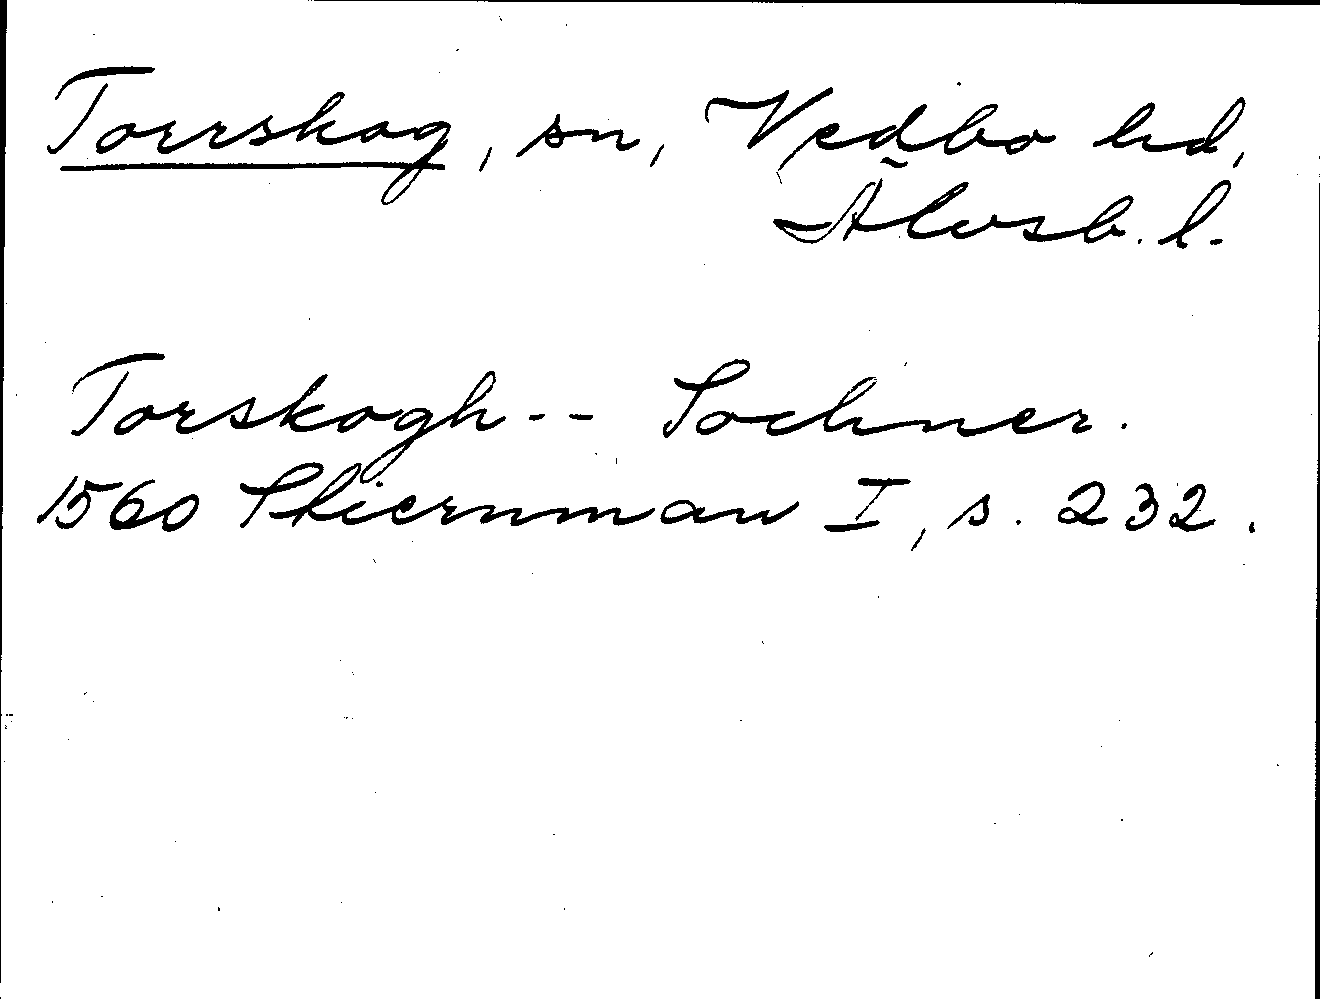 Torrskog, sn, Vedbo hd,
Älvsb. l.
Torskogh-- Sochner.
1560 Stiernman I, s. 232.